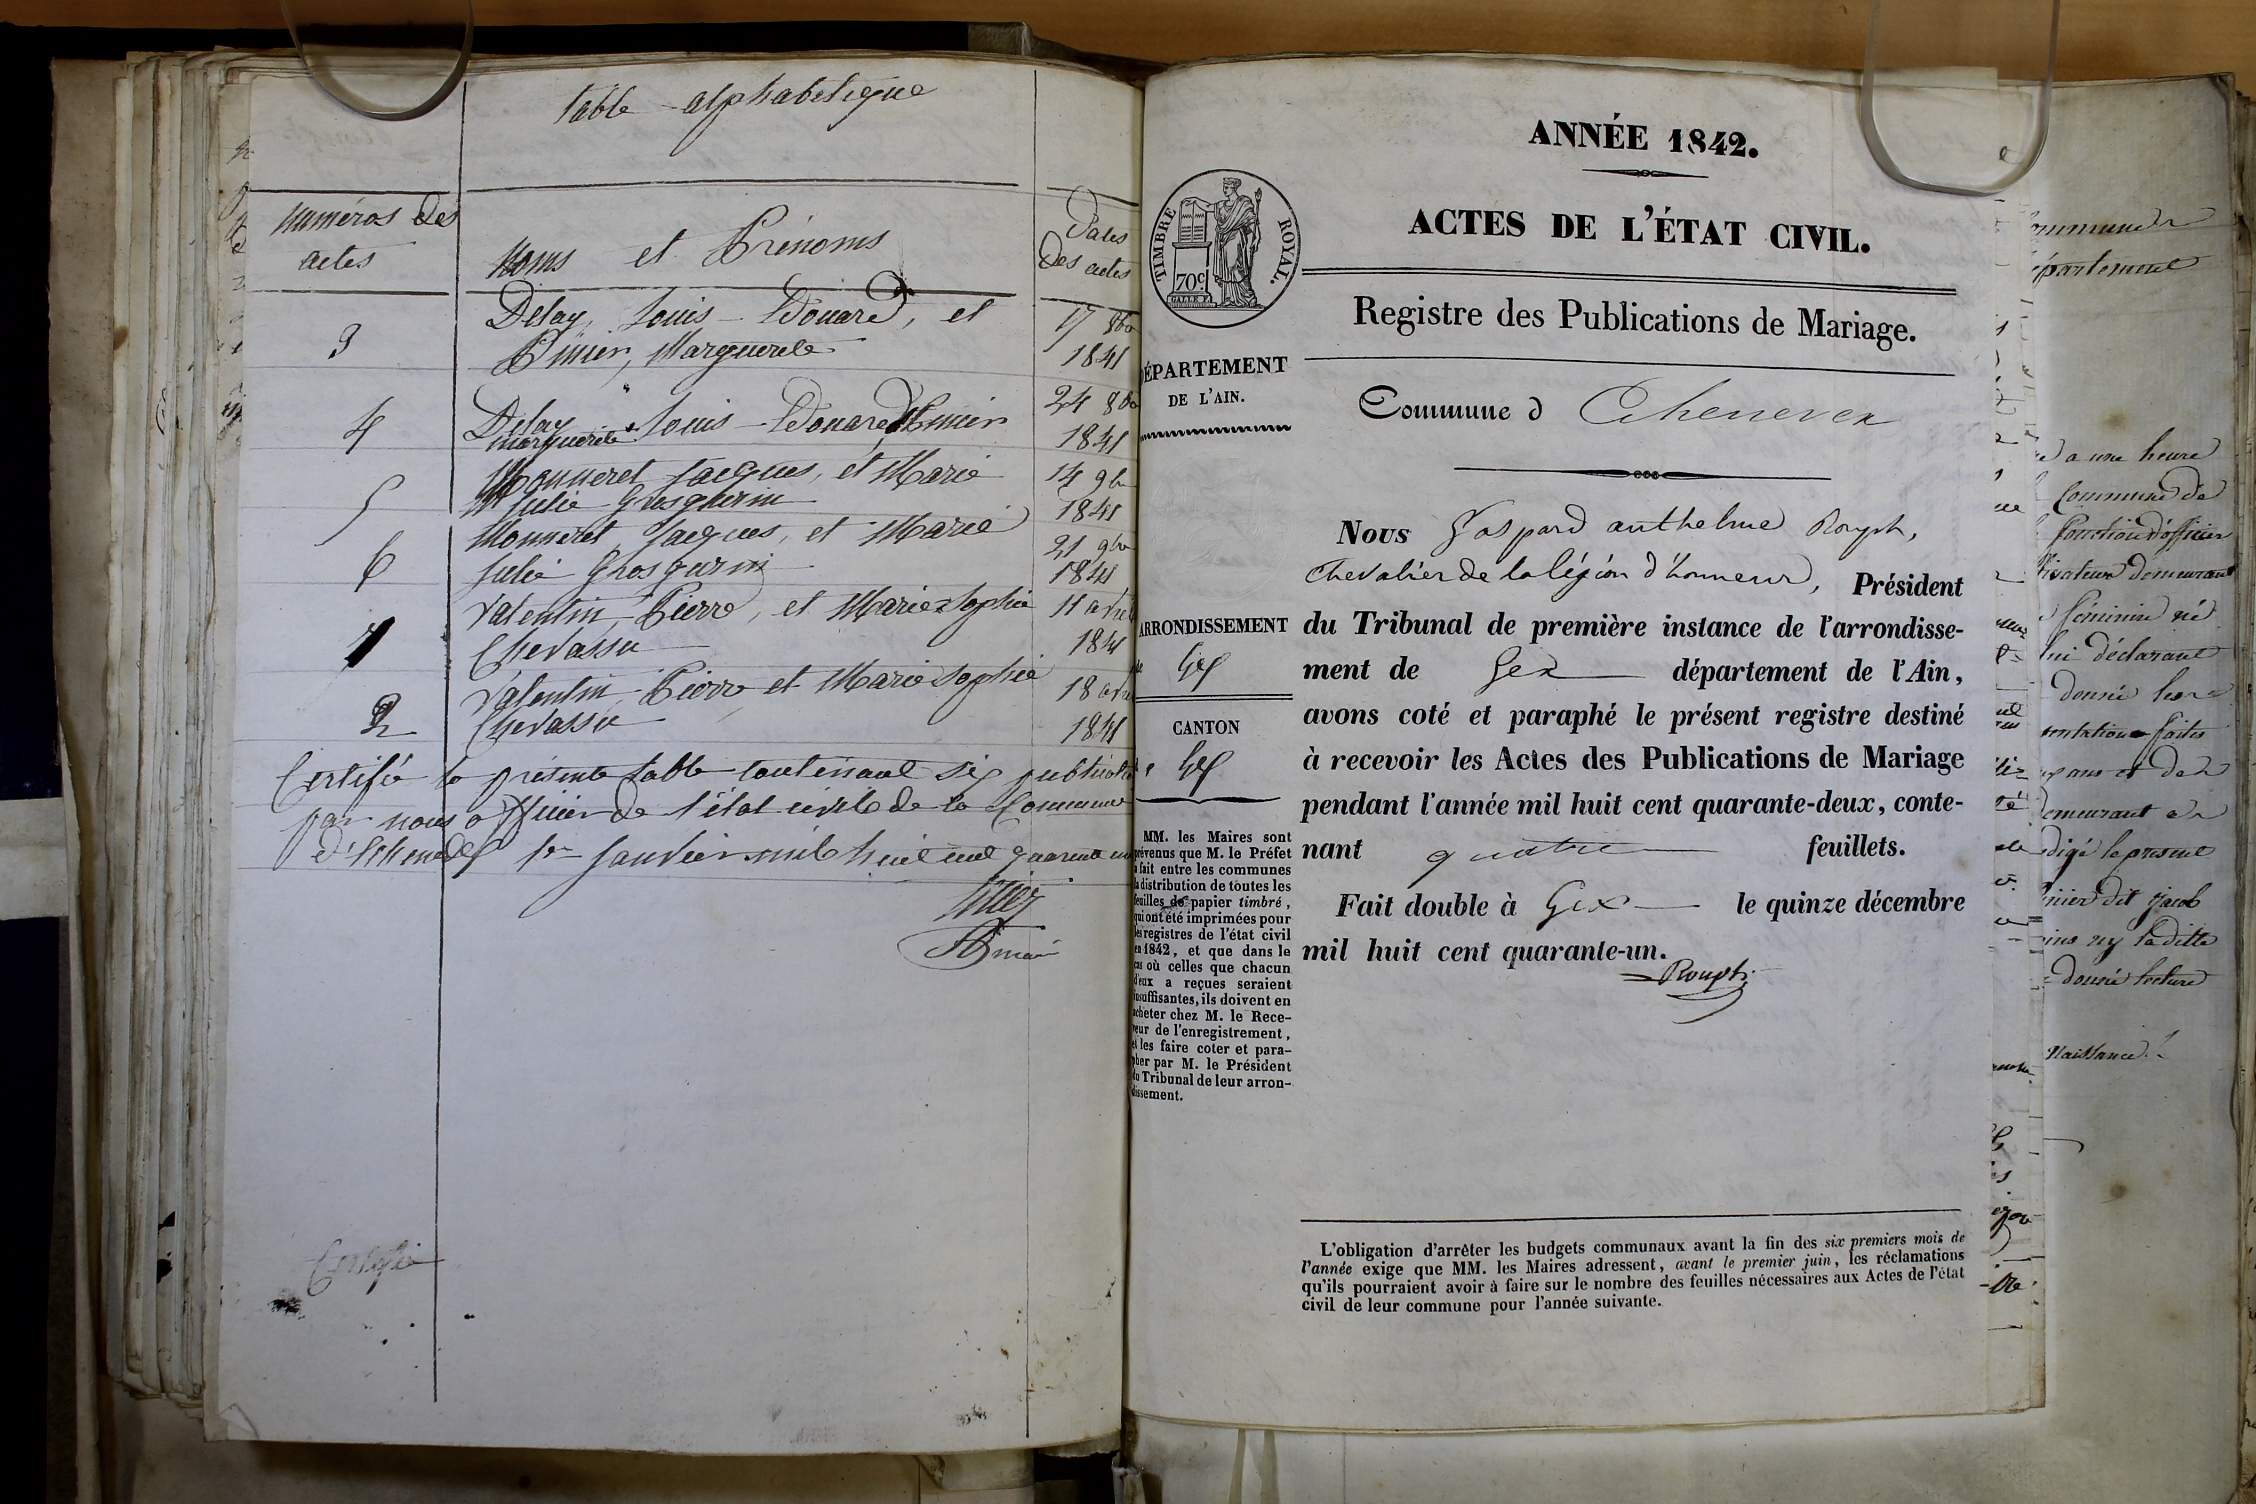 table alphabétique
numéros des
actes
Noms et Prénoms
Dates
des actes
3
Delay, Louis-Edouard, et
Pinier, Marguerele
17 8bre
1841
4
Delay Louis-Edouard
marguerite
24 8bre
1841
5
Monneret Jacques, et Marie
Julie Grosgurin
14 9bre
1841
6
Monneret Jacques, et Marie
Julie Grosgurin
21 9bre
1841
1
Valentin, Pierre, et Marie Sophie
Chevassu
11 avril
1841
2
Valentin, Pierre et Marie Sophie
Chevassu
18 avril
1841
Certifié la présente table contenant six
par nous officier de l'état civile de la Commune
1er Janvier mil huit cent quarante
Certifié
ANNÉE 1842.
ACTES DE L'ÉTAT CIVIL.
TIMBRE ROYAL.
70c
Registre des Publications de Mariage.
DÉPARTEMENT
DE L'AIN.
Commune d Echenevex
ARRONDISSEMENT
de Gex
CANTON
Gex
MM. les Maires sont
prévenus que M. le Préfet
a fait entre les communes
la distribution de toutes les
feuilles de papier timbré,
qui ont été imprimées pour
les registres de l'état civil
en 1842, et que dans le
cas où celles que chacun
d'eux a reçues seraient
insuffisantes, ils doivent en
acheter chez M. le Rece-
veur de l'enregistrement,
et les faire coter et para-
pher par M. le Président
du Tribunal de leur arron-
dissement.
Nous Gaspard anthelme Rouph,
Chevalier de la légion d'honneur, Président
du Tribunal de première instance de l'arrondisse-
ment de Gex département de l'Ain,
avons coté et paraphé le présent registre destiné
à recevoir les Actes des Publications de Mariage
pendant l'année mil huit cent quarante-deux, conte-
nant quatre feuillets.
Fait double à Gex le quinze décembre
mil huit cent quarante-un.
Rouph
L'obligation d'arrêter les budgets communaux avant la fin des six premiers mois de
l'année exige que MM. les Maires adressent, avant le premier juin, les réclamations
qu'ils pourraient avoir à faire sur le nombre des feuilles nécessaires aux Actes de l'état
civil de leur commune pour l'année suivante.
a une heure
Commune de
féminin né
lui déclarant
donné les
demeurant a
digé le present
dit jacob
ny la ditte
donné lecture
Naissance